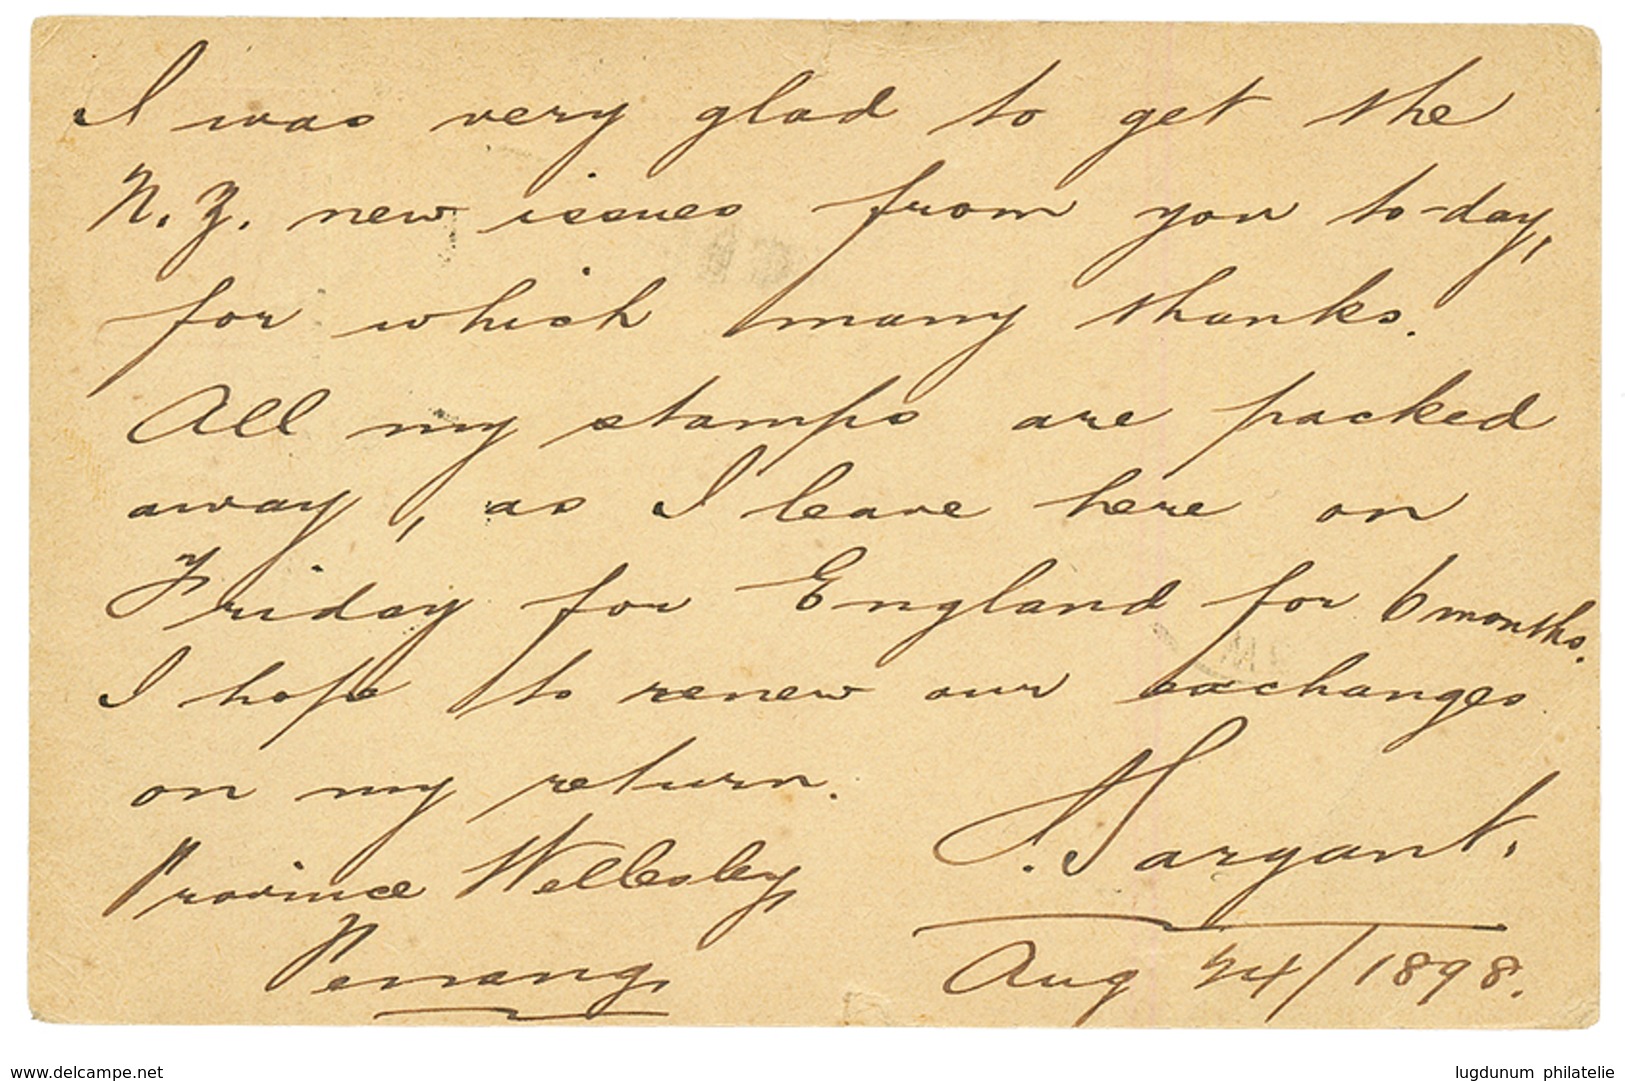 I was very glad to get the
N. Z. new issues from you to-day,
for which many thanks.
All my stamps are packed
away, as I leave here on
Friday for England for 6 months.
I hope to renew our exchanges
on my return.
Sargant.
Province Wellesley,
Penang,
Aug 24/1898.
www.delcampe.net
lugdunum philatelie